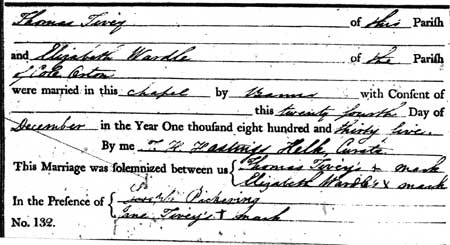 Thomas Tivey of this Parish
and Elizabeth Wardle of the Parish
of Cole Orton
were married in this chapel by Banns with Consent of
this twenty fourth Day of
December in the Year One thousand eight hundred and thirty five.
By me T. H. Curate
This Marriage was solemnized between us { Thomas Tivey's x mark
Elizabeth Wardle's x mark
In the Presence of { Pickering
Jane Tivey's x mark
No. 132.